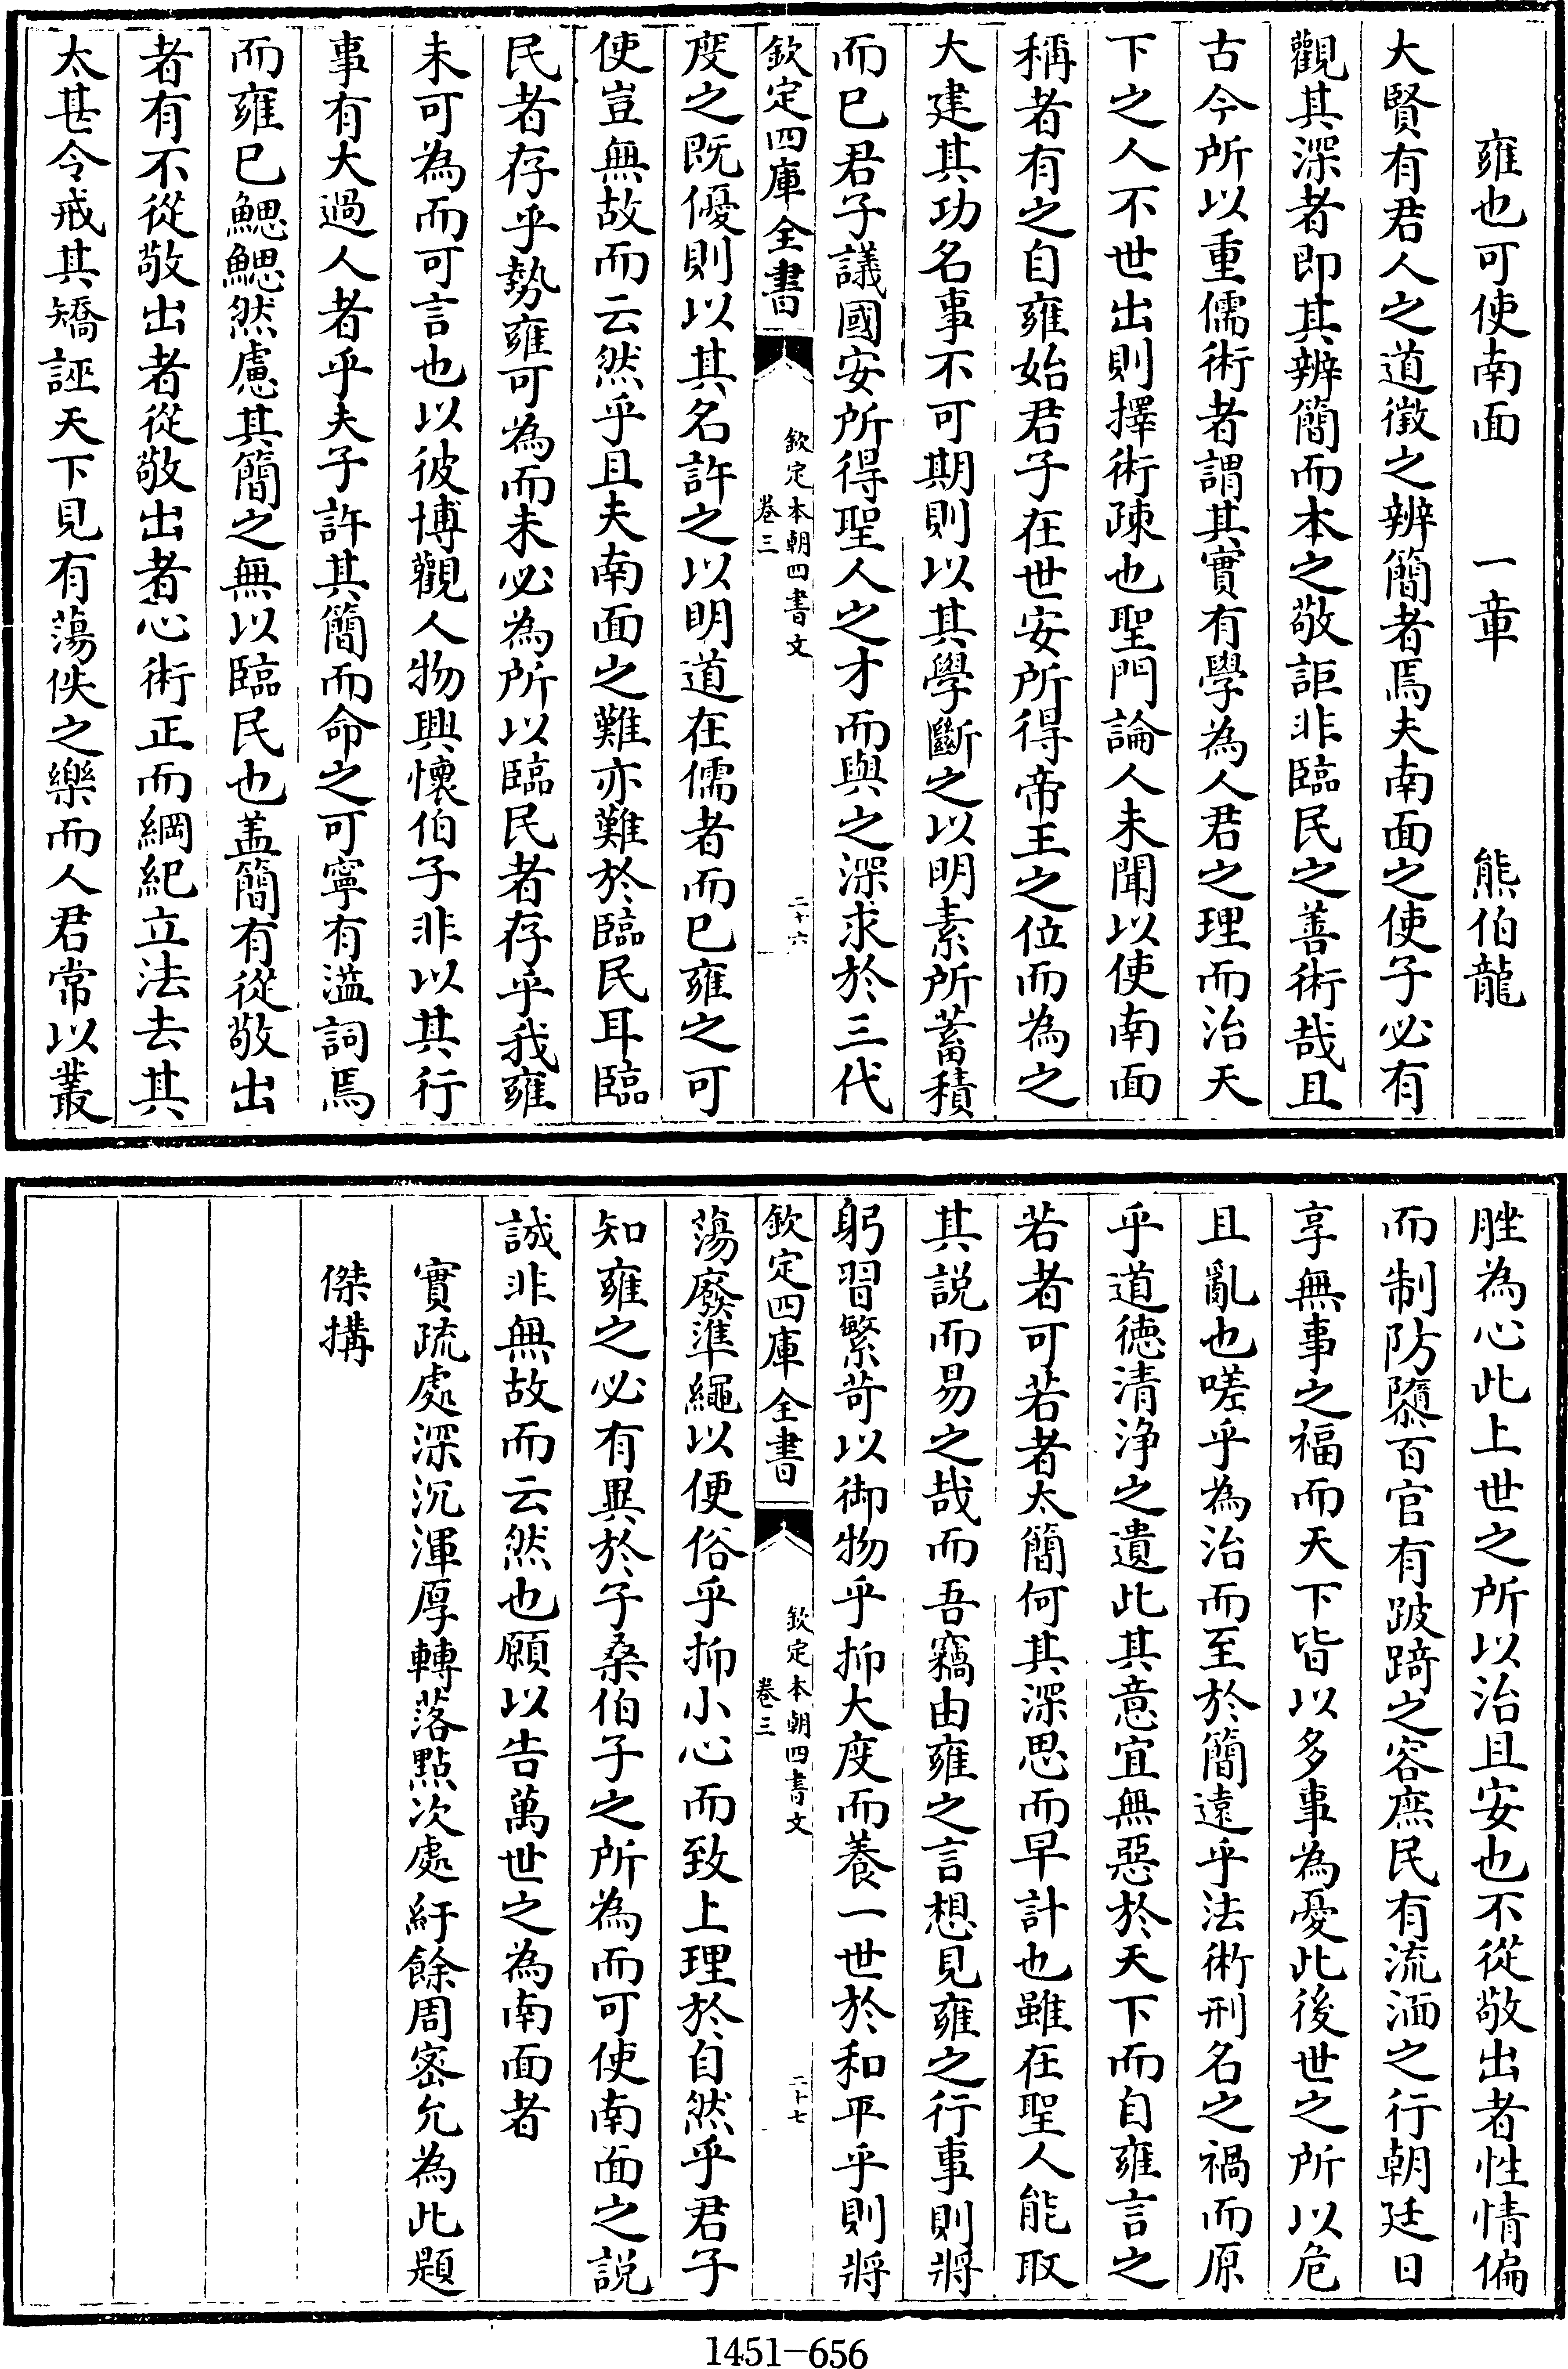 雍也可使南面　一章　熊伯龍
大賢有君人之道徵之辨簡者焉夫南面之使子必有
觀其深者即其辨簡而本之敬詎非臨民之善術哉且
古今所以重儒術者謂其實有學為人君之理而治天
下之人不世出則擇術疎也聖門論人未聞以使南面
稱者有之自雍始君子在世安所得帝王之位而為之
大建其功名事不可期則以其學斷之以明素所蓄積
而已君子議國安所得聖人之才而與之深求於三代
欽定四庫全書
欽定本朝四書文
卷三
二十六
度之既優則以其名許之以明道在儒者而已雍之可
使豈無故而云然乎且夫南面之難亦難於臨民耳臨
民者存乎勢雍可為而未必為所以臨民者存乎我雍
未可為而可言也以彼博觀人物興懷伯子非以其行
事有大過人者乎夫子許其簡而命之可寧有溢詞焉
而雍已鰓鰓然慮其簡之無以臨民也盖簡有從敬出
者有不從敬出者從敬出者心術正而綱紀立法去其
太甚令戒其矯誣天下見有蕩佚之樂而人君常以叢
脞為心此上世之所以治且安也不從敬出者性情偏
而制防隳百官有跛踦之容庶民有流湎之行朝廷日
享無事之福而天下皆以多事為憂此後世之所以危
且亂也嗟乎為治而至於簡遠乎法術刑名之禍而原
乎道德清浄之遺此其意宜無惡於天下而自雍言之
若者可若者太簡何其深思而早計也雖在聖人能取
其説而易之哉而吾竊由雍之言想見雍之行事則將
躬習繁苛以御物乎抑大度而養一世於和平乎則將
欽定四庫全書
欽定本朝四書文
卷三
二十七
蕩廢準繩以便俗乎抑小心而致上理於自然乎君子
知雍之必有異於子桑伯子之所為而可使南面之説
誠非無故而云然也願以告萬世之為南面者
實疏處深沉渾厚轉落點次處紆餘周密允為此題
傑搆
1451-656